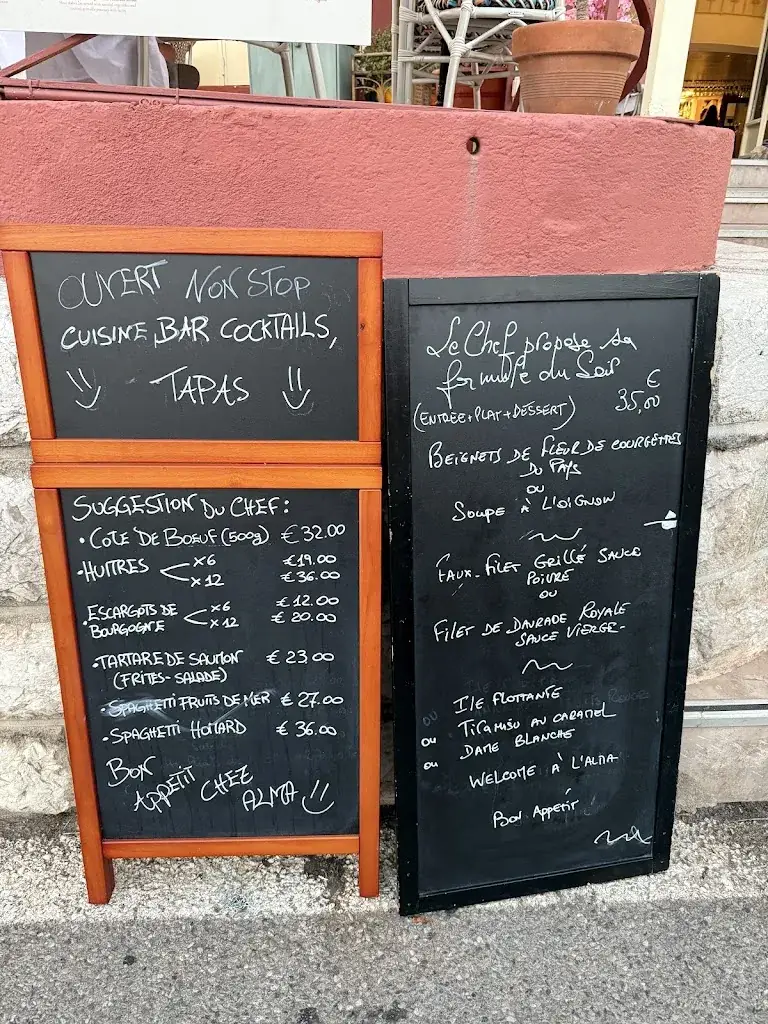 OUVERT NON STOP
CUISINE, BAR COCKTAILS,
TAPAS
SUGGESTION DU CHEF:
• COTE DE BOEUF (500g) € 32.00
• HUITRES x6 €19.00
x12 € 36.00
• ESCARGOTS DE x6 € 12.00
BOURGOGNE x12 € 20.00
• TARTARE DE SAUMON € 23.00
(FRITES-SALADE)
• SPAGHETTI FRUITS DE MER € 27.00
• SPAGHETTI HOMARD € 36.00
BON
APPETIT CHEZ
ALMA
Le Chef propose sa
formule du Soir
€
(ENTREE+PLAT+DESSERT) 35,00
BEIGNETS DE FLEUR DE COURGETTES
DU PAYS
OU
SOUPE À L'OIGNON
FAUX-FILET GRILLÉ SAUCE
POIVRE
OU
FILET DE DAURADE ROYALE
SAUCE VIERGE-
ILE FLOTTANTE
OU TIRAMISU AU CARAMEL
OU DAME BLANCHE
WELCOME À L'ALMA
BON APPETIT